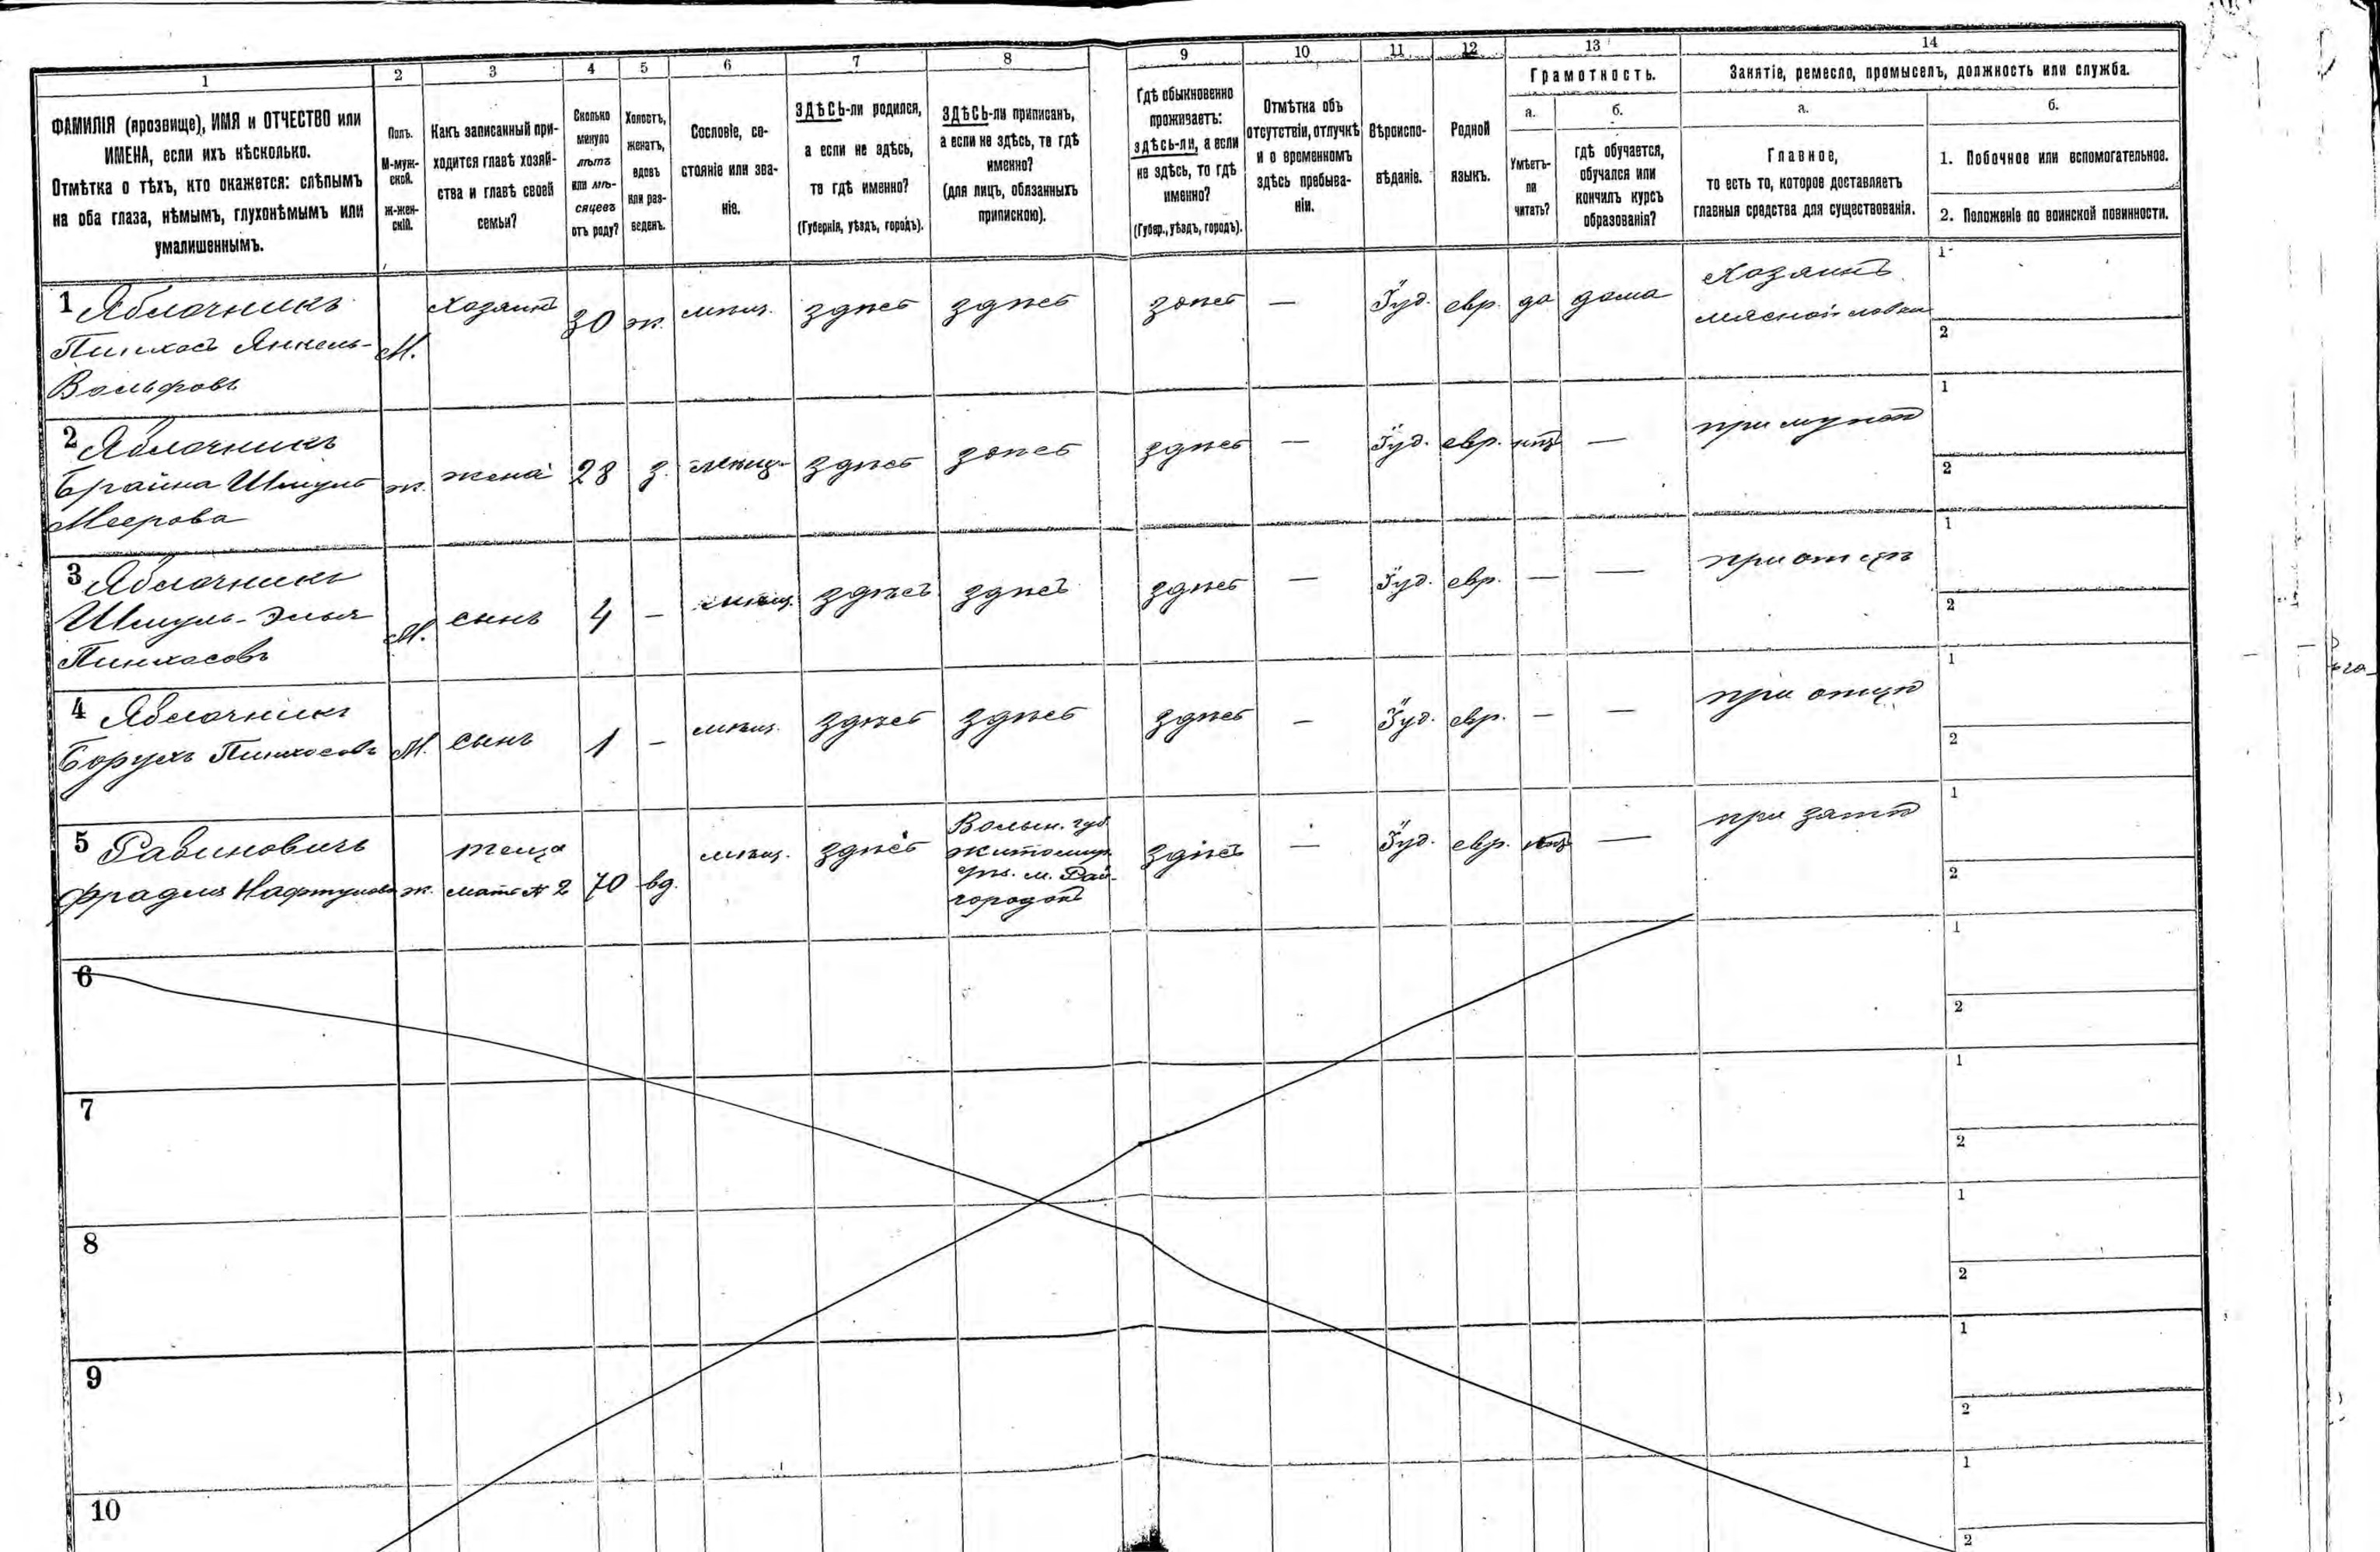 1 2 3 4 5 6 7 8 9 10 11 12 13 14
ФАМИЛІЯ (прозвище), ИМЯ и ОТЧЕСТВО или
ИМЕНА, если ихъ нѣсколько.
Отмѣтка о тѣхъ, кто окажется: слѣпымъ
на оба глаза, нѣмымъ, глухонѣмымъ или
умалишеннымъ.
Полъ.
М-муж-
ской.
Ж-жен-
скій.
Какъ записанный при-
ходится главѣ хозяй-
ства и главѣ своей
семьи?
Сколько
минуло
лѣтъ
или мѣ-
сяцевъ
отъ роду?
Холостъ,
женатъ,
вдовъ
или раз-
веденъ.
Сословіе, со-
стояніе или зва-
ніе.
ЗДѢСЬ-ли родился,
а если не здѣсь,
то гдѣ именно?
(Губернія, уѣздъ, городъ).
ЗДѢСЬ-ли приписанъ,
а если не здѣсь, то гдѣ
именно?
(для лицъ, обязанныхъ
припискою).
Гдѣ обыкновенно
проживаетъ:
здѣсь-ли, а если
не здѣсь, то гдѣ
именно?
(Губер., уѣздъ, городъ).
Отмѣтка объ
отсутствіи, отлучкѣ
и о временномъ
здѣсь пребыва-
ніи.
Вѣроиспо-
вѣданіе.
Родной
языкъ.
Грамотность.
а.
Умѣетъ-
ли
читать?
б.
гдѣ обучается,
обучался или
кончилъ курсъ
образованія?
Занятіе, ремесло, промыселъ, должность или служба.
а.
Главное,
то есть то, которое доставляетъ
главныя средства для существованія.
б.
1. Побочное или вспомогательное.
2. Положеніе по воинской повинности.
1 Яблочникъ
Пинхасъ Янкель-
Вольфовъ
М.
Хозяинъ
30
ж.
мѣщ.
здѣсь
здѣсь
здѣсь
—
Іуд.
евр.
да
дома
Хозяинъ
мясной лавки
1
2
2 Яблочникъ
Брайна Шмуль
Меерова
ж.
жена
28
з.
мѣщ.
здѣсь
здѣсь
здѣсь
—
Іуд.
евр.
нѣтъ
—
при мужѣ
1
2
3 Яблочникъ
Шмуль-Элья
Пинхасовъ
М.
сынъ
4
—
мѣщ.
здѣсь
здѣсь
здѣсь
—
Іуд.
евр.
—
—
при отцѣ
1
2
4 Яблочникъ
Борухъ Пинхосовъ
М.
сынъ
1
—
мѣщ.
здѣсь
здѣсь
здѣсь
—
Іуд.
евр.
—
—
при отцѣ
1
2
5 Рабиновичъ
Фрадля Нафтулова
ж.
теща
мать № 2
70
вд.
мѣщ.
здѣсь
Волын. губ.
Житомир.
у. м. Рай-
городокъ
здѣсь
—
Іуд.
евр.
нѣтъ
—
при зятѣ
1
2
6
1
2
7
1
2
8
1
2
9
1
2
10
1
2